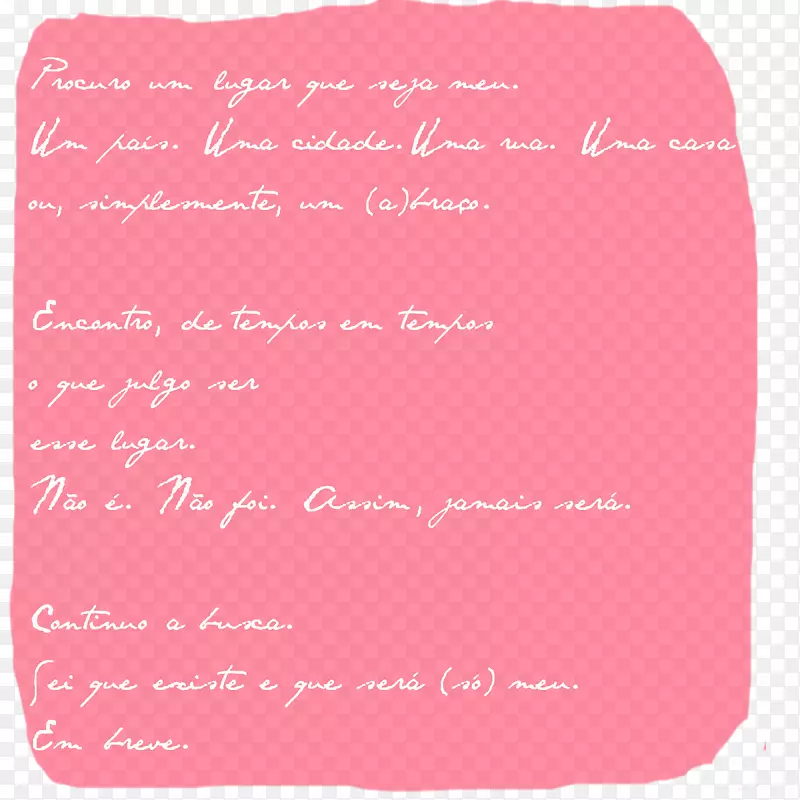 Procuro um lugar que seja meu.
Um país. Uma cidade. Uma rua. Uma casa
ou, simplesmente, um (a)braço.
Encontro, de tempos em tempos
o que julgo ser
esse lugar.
Não é. Não foi. Assim, jamais será.
Continuo a busca.
Sei que existe e que será (só) meu.
Em breve.